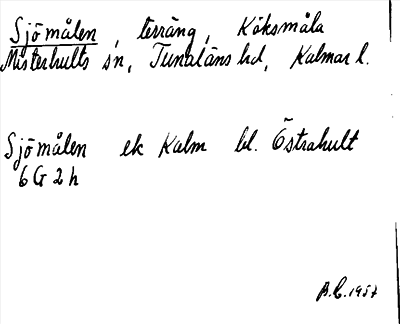 Sjömålen, terräng, Köksmåla
Misterhults sn, Tunaläns hd, Kalmar l.
Sjömålen ek Kalm bl. Östrahult
6 G 2 h
B.E. 1957